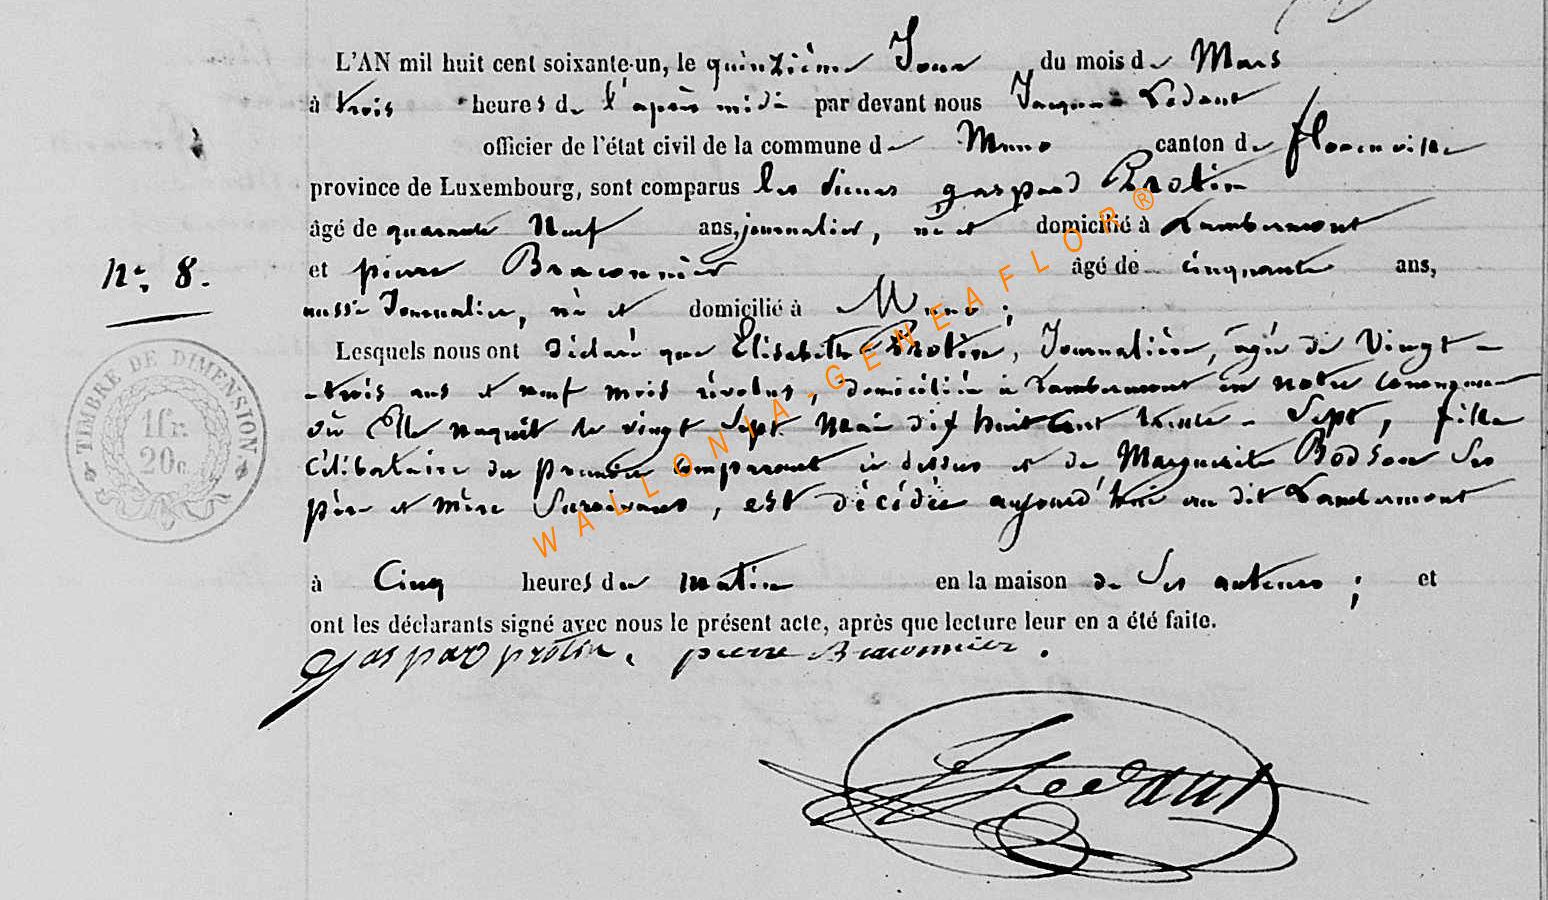 L'AN mil huit cent soixante-un, le quinzième Jour du mois de Mars
à trois heures de l'après midi par devant nous Jacques Ledant
officier de l'état civil de la commune de Muno canton de florenville
province de Luxembourg, sont comparus les sieurs gaspard Protin
âgé de quarante Neuf ans, journalier, né et domicilié à Lambermont
et pierre Braconnier âgé de cinquante ans,
aussi Journalier, né et domicilié à Muno ;
Lesquels nous ont déclaré que Elisabeth Protin, Journalière, âgée de Vingt -
- trois ans et neuf mois révolus, domiciliée à Lambermont en notre commune
où Elle naquît le vingt Sept Mai dix huit Cent trente - Sept, fille
Célibataire du premier comparant ci dessus et de Marguerite Bodson Ses
père et mère Survivans, est décédée aujourd'hui au dit Lambermont
à Cinq heures du matin en la maison de Ses auteurs ; et
ont les déclarants signé avec nous le présent acte, après que lecture leur en a été faite.
gaspard protin, pierre Braconnier.
JLedant
N° 8.
TIMBRE DE DIMENSION
1 fr.
20c.
WALLONIA-GENEAFLOR®